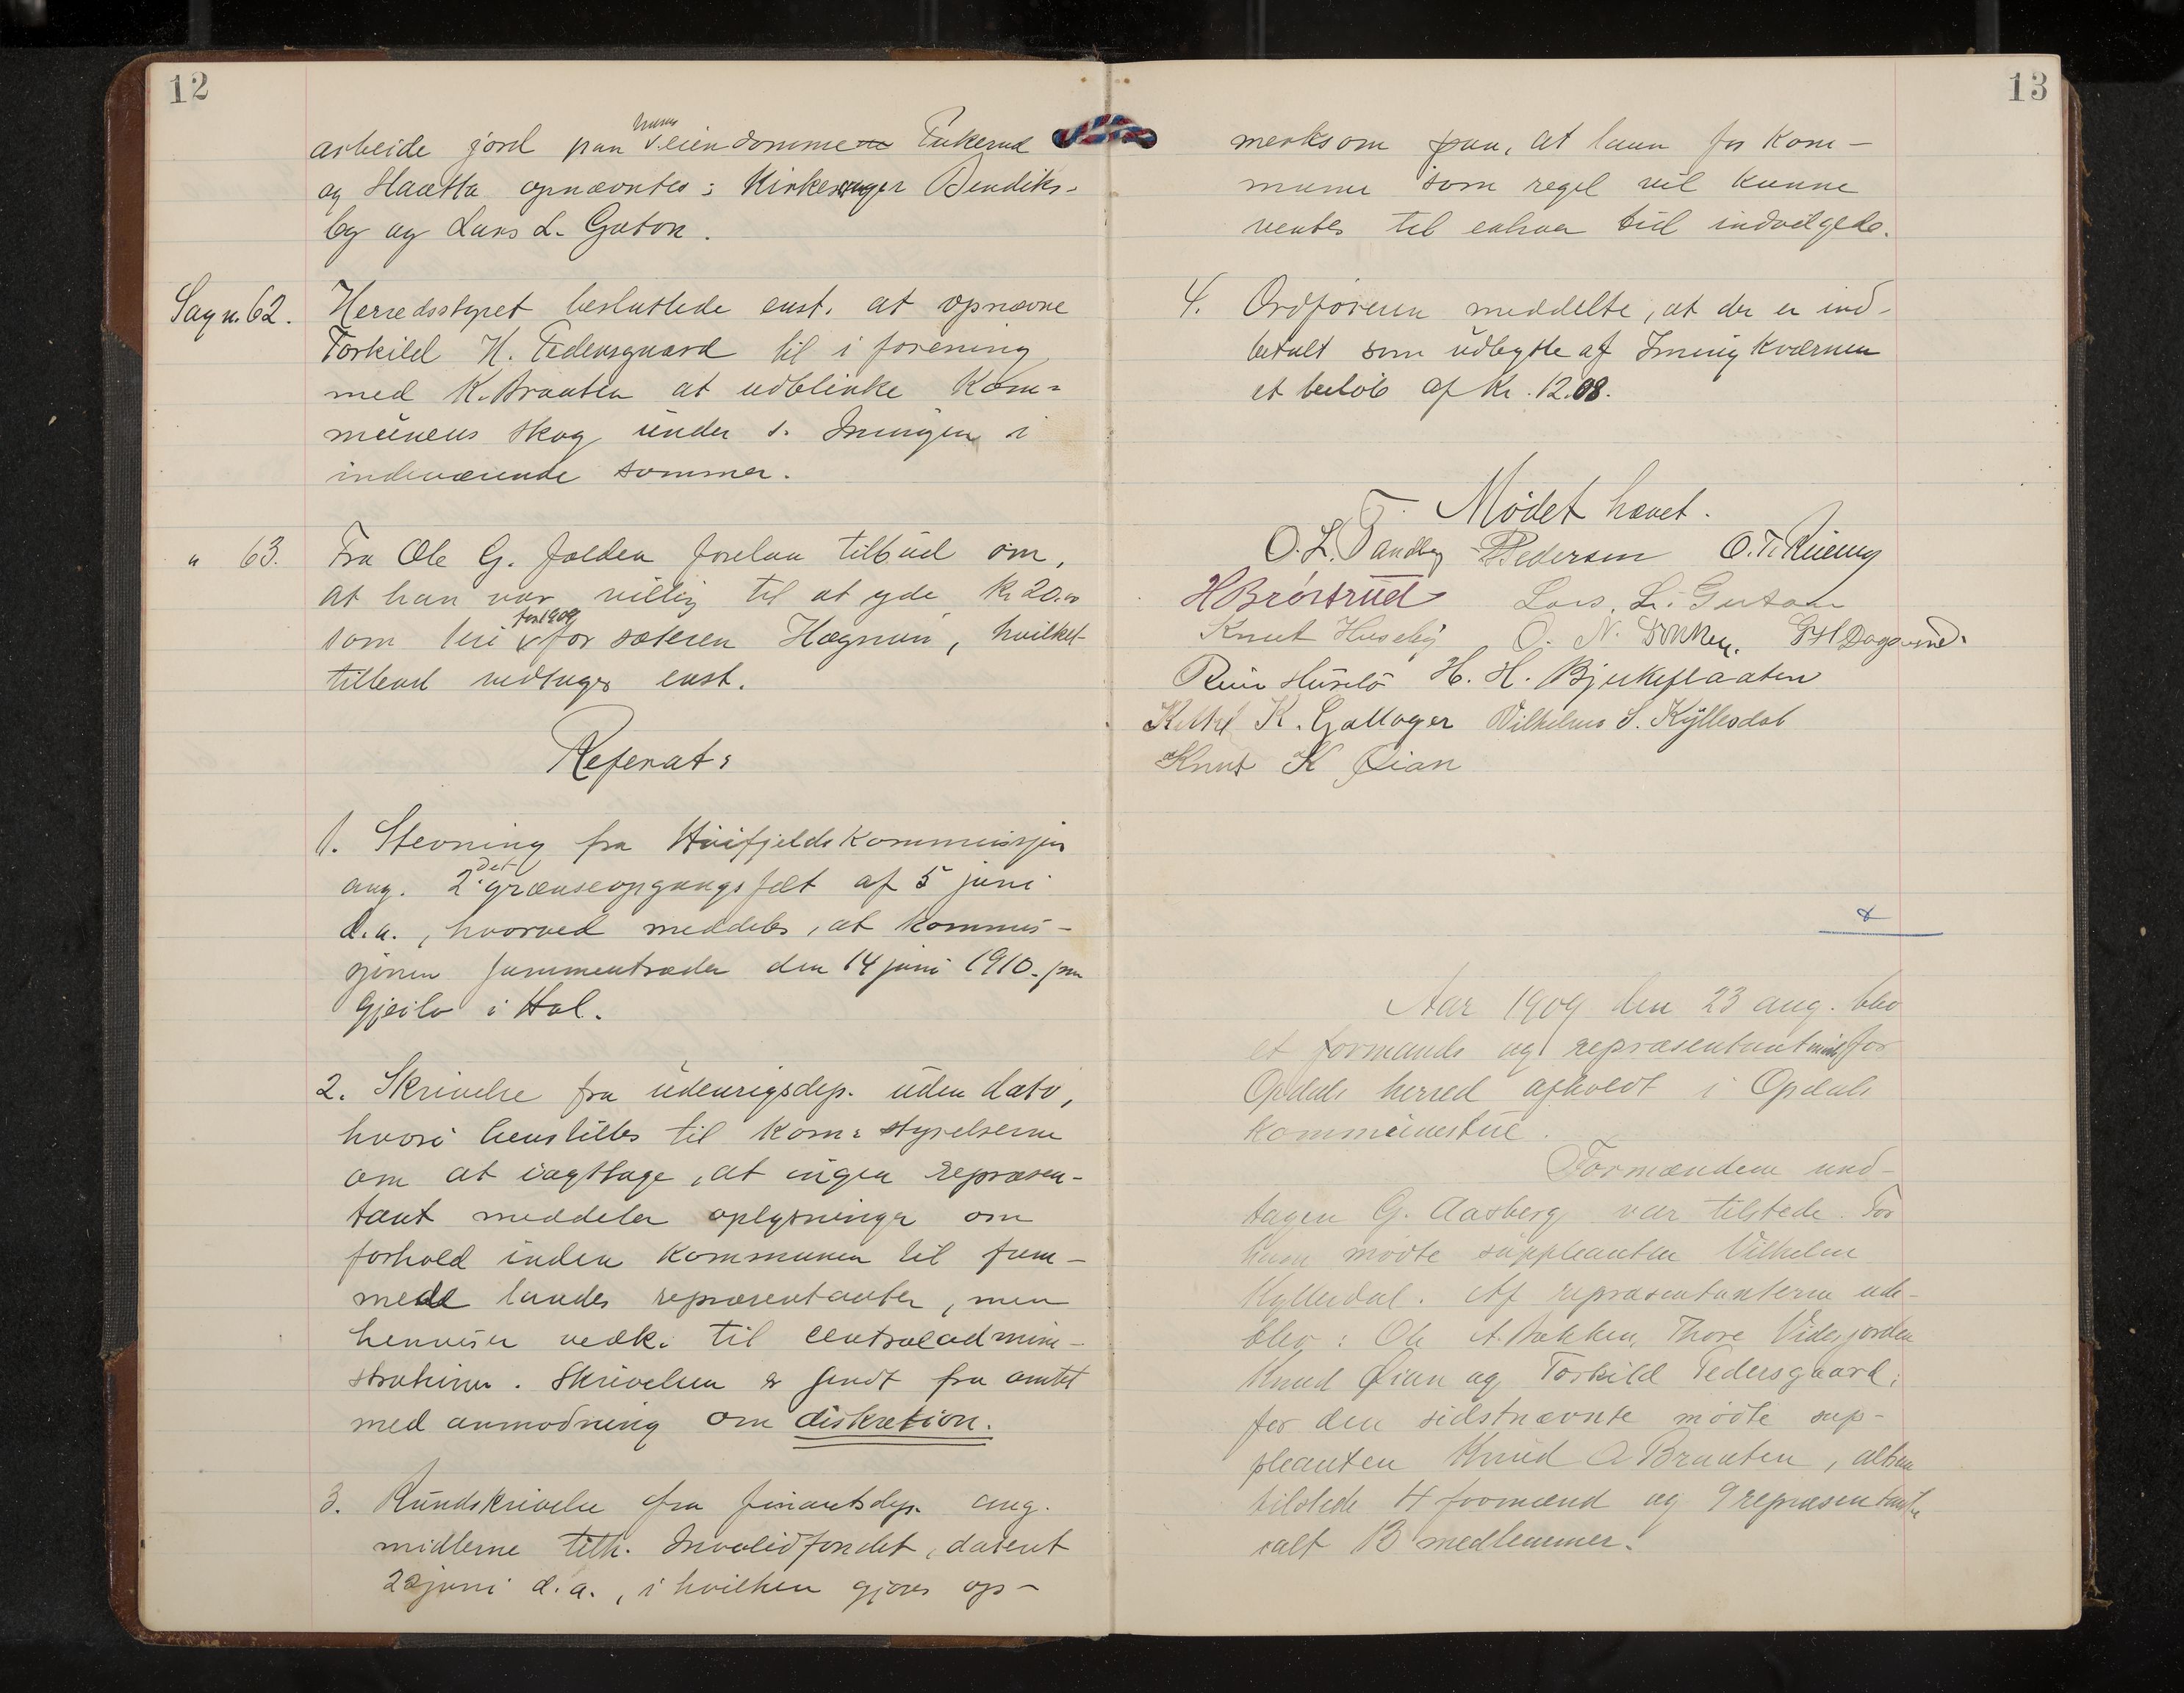 12
arbeide jord paa hans eiendomme
og Haatta opnævntes: Kirkesanger Bendiks-
by og Lars L. Guton.
Sag n. 62. Herredsstyret besluttede enst. at opnævne
Torkild H. Tedensgaard til i forening
med K. Braaten at udblinke Kom-
munens skog under s. Imingen i
indeværende sommer.
" 63. Fra Ole G. Jolden forelaa tilbud om,
at han var villig til at yde kr 20.00
som leie for 1909 for sæteren Hægnun, hvilket
tilbud vedtages enst.
Referat:
1. Stevning fra Høifjeldskommissjon
ang. 2det grænseopgangsfelt af 5 juni
d.a., hvorved meddeles, at kommis-
sjonen sammentræder den 14 juni 1910 paa
Gjeilo i Hol.
2. Skrivelse fra udenrigsdep. uden dato,
hvori henstilles til Kom: styrelserne
om at iagttage, at ingen repræsen-
tant meddeler oplysninger om
forhold inden kommunen til frem-
mede landes repræsentanter, men
henviser vedk. til centraladmini-
strationen. Skrivelsen er sendt fra amtet
med anmodning om diskretion.
3. Rundskrivelse fra finantsdep. ang.
midlerne tilh. Invalidfondet, dateret
22 juni d.a., i hvilken gjøres op-
13
merksom paa, at laan for Kom-
mune som regel vil kunne
ventes til enhver tid indvilgede.
4. Ordføreren meddelte, at der er ind-
betalt som udbytte af Iming Kværnen
et beløb af Kr. 12.08.
Mødet hævet.
O. L. Tandberg T. Pedersen O. T. Rueng
H Brøstrud Lars. L. Guton
Knut Huseby O. N.
H. H. Bjerkeflaaten
K. Gallager Vilhelm S. Kyllesdal
Knut K Øian
Aar 1909 den 23 aug. blev
et formands og repræsentantmøde for
Opdals herred afholdt i Opdals
kommunestue.
Formændene und-
tagen G. Aasberg var tilstede. For
ham mødte suppleanten Vilhelm
Kyllesdal. Af repræsentanterne ude-
blev: Ole A. Bakken, Thore Videsjorden
Knud Øian og Torkild Tedensgaard;
for den sidstnævnte møtte sup-
pleanten Knud O Braaten, altsaa
tilstede 4 formænd og 9 repræsentanter
ialt 13 medlemmer.